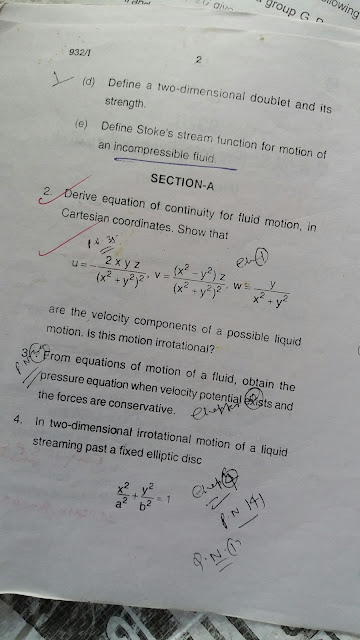 group G
932/I
2
(d) Define a two-dimensional doublet and its
strength.
(e) Define Stoke's stream function for motion of
an incompressible fluid.
SECTION-A
2. Derive equation of continuity for fluid motion, in
Cartesian coordinates. Show that
u = - 2 x y z / (x² + y²)², v = (x² - y²) z / (x² + y²)², w = y / x² + y²
are the velocity components of a possible liquid
motion. Is this motion irrotational?
3. From equations of motion of a fluid, obtain the
pressure equation when velocity potential exists and
the forces are conservative.
4. In two-dimensional irrotational motion of a liquid
streaming past a fixed elliptic disc
x²/a² + y²/b² = 1